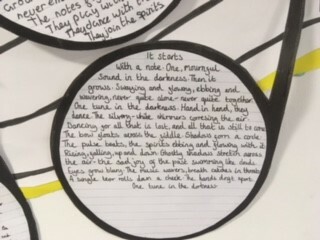 never en
The notes
They play
They dance with
They join the spirits
It starts
With a note. One, mournful
Sound in the darkness. Then it
grows. Swaying and flowing, ebbing and
wavering, never quite alone - never quite together
One tune in the darkness. Hand in hand, they
dance. The silvery-white shimmers convering the air.
Dancing for all that is lost, and all that is still to come
The bow floats across the fiddle. Shadows form a circle
The pulse beats, the spirits ebbing and flowing with it
Rising, falling, up and down. Ghostly shadows stretch across
the air - the sad joy of the past swimming like
Eyes grow blurry. The music wavers, breath catches in throats
A single tear rolls down a cheek. The hands drift apart
One tune in the darkness